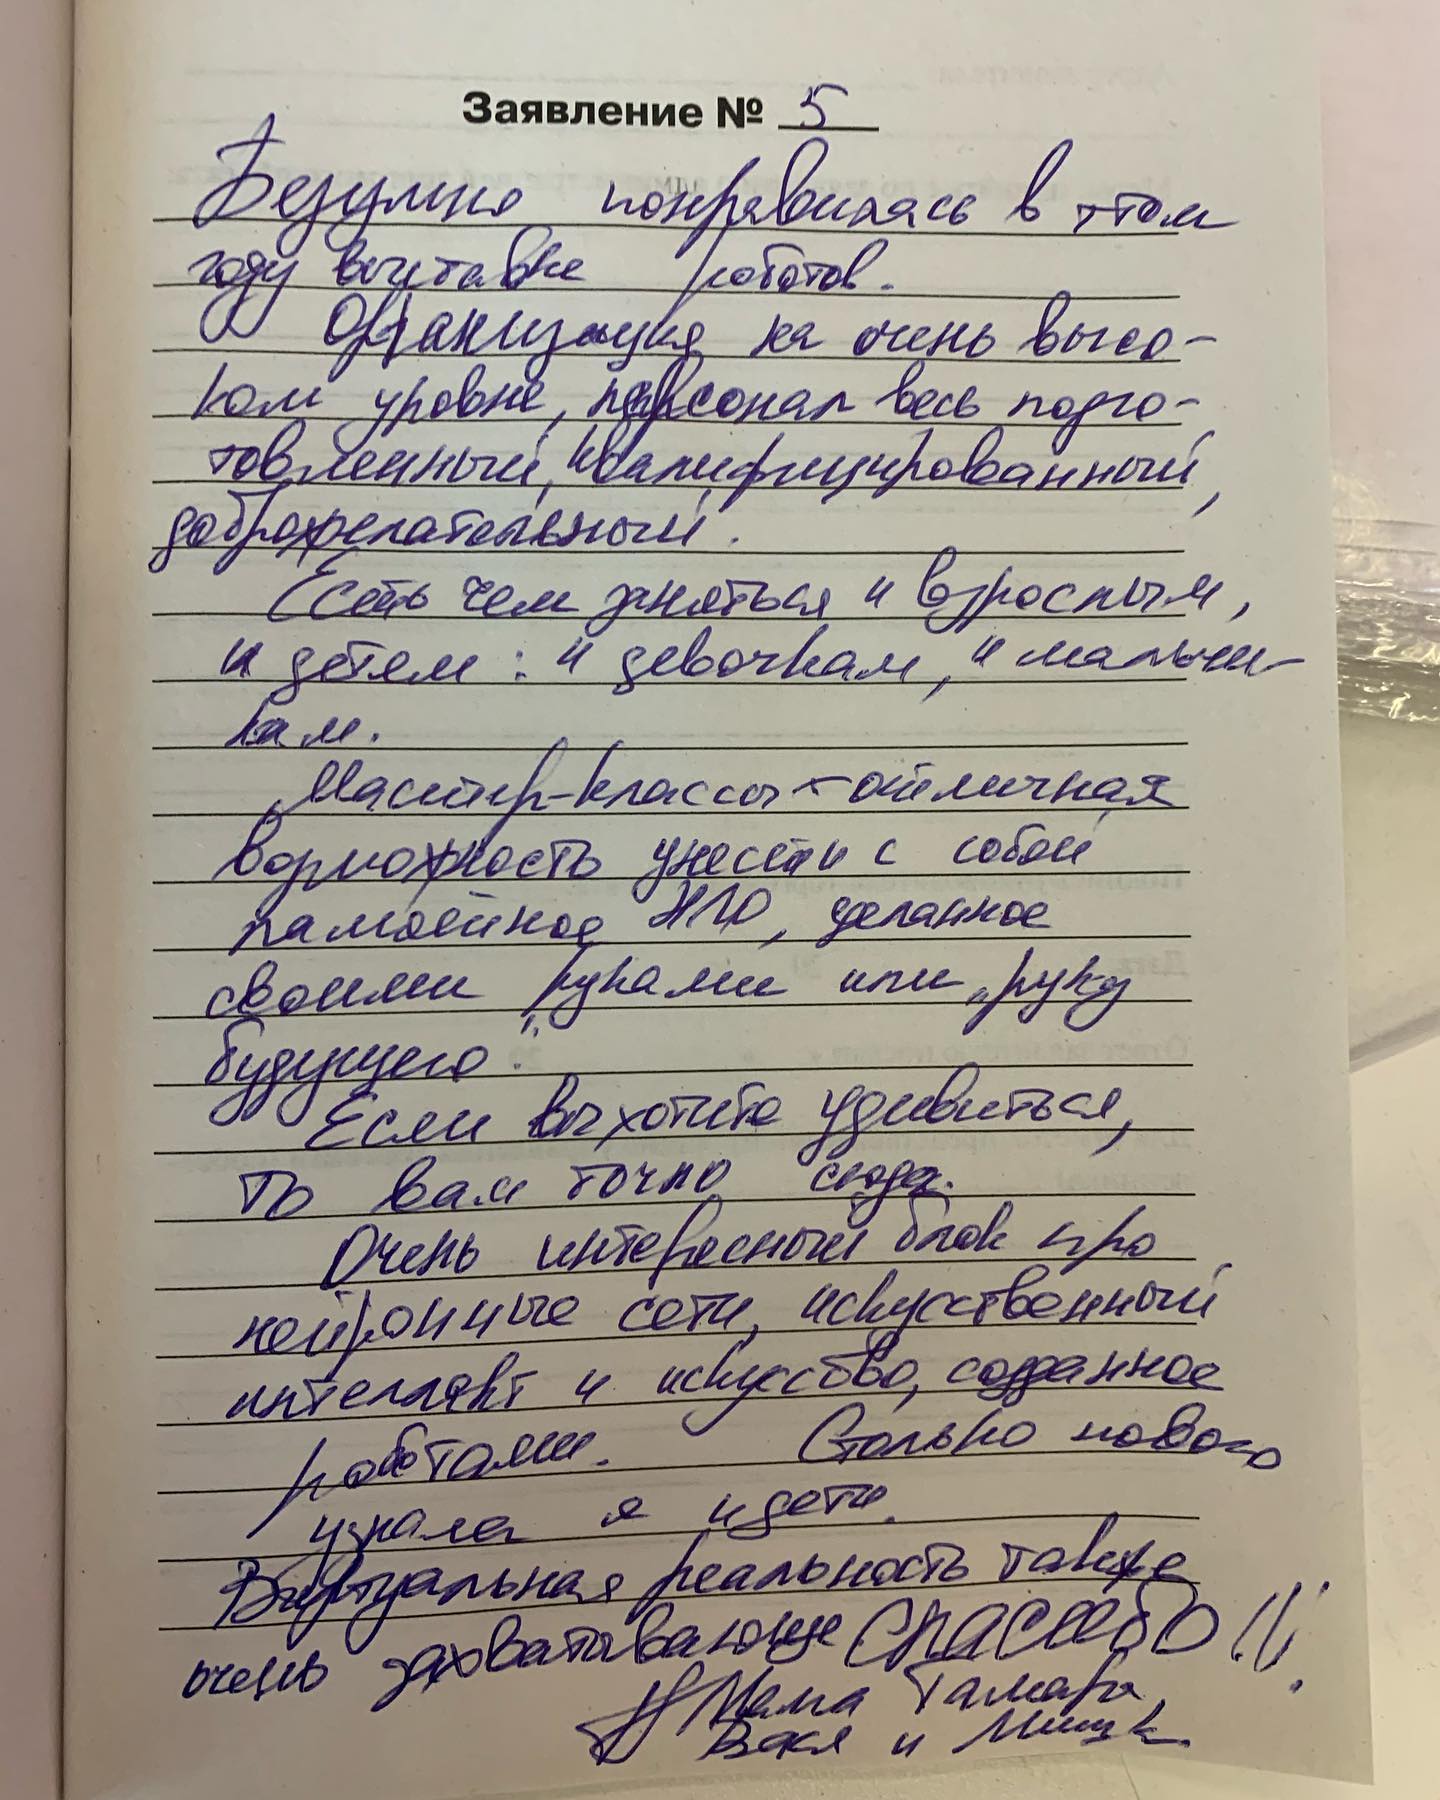 Заявление № 5
Безумно понравилась в этом
году выставке роботов.
Организация на очень высо-
ком уровне, персонал весь подго-
товленный, квалифицированный,
доброжелательный.
Есть чем заняться и взрослым,
и детям: и девочкам, и мальчи-
кам.
Мастер-классы - отличная
возможность унести с собой
памятное НЛО, сделанное
своими руками или „руку
будущего".
Если вы хотите удивиться,
то вам точно сюда.
Очень интересный блок про
нейронные сети, искусственный
интеллект и искусство, созданное
роботами. Столько нового
узнала я и дети.
Виртуальная реальность также
очень захватывающе СПАСИБО!!!
Мама Тамара,
Вася и